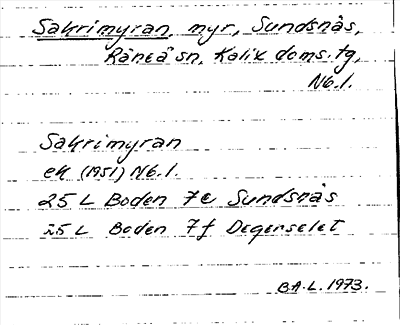 Sakrimyran, myr, Sundsnäs,
Råneå sn, Kalix doms.tg,
Nb.l.
Sakrimyran
ek (1951) Nb.l.
25 L Boden 7e Sundsnäs
25 L Boden 7f Degerselet
B.A.L. 1973.